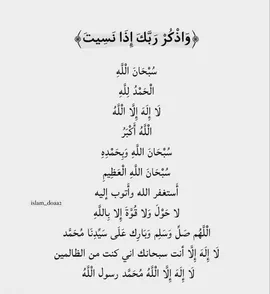 ﴿وَاذْكُرْ رَبَّكَ إِذَا نَسِيتَ﴾
سُبْحَانَ اللَّهِ
الْحَمْدُ لِلَّهِ
لَا إِلَهَ إِلَّا اللَّهُ
اللَّهُ أَكْبَرُ
سُبْحَانَ اللَّهِ وَبِحَمْدِهِ
سُبْحَانَ اللَّهِ الْعَظِيمِ
أَستغفر الله وأَتوب إليه
islam_doaa2
لا حَوْلَ وَلا قُوَّةَ إِلا بِاللَّهِ
اللَّهُم صَلِّ وَسَلِم وَبَارِك عَلَى سَيِّدِنَا مُحَمَّد
لَا إِلَهَ إِلَّا أنت سبحانك اني كنت من الظالمين
لَا إِلَهَ إِلَّا اللَّهُ مُحَمَّد رسول اللَّهُ